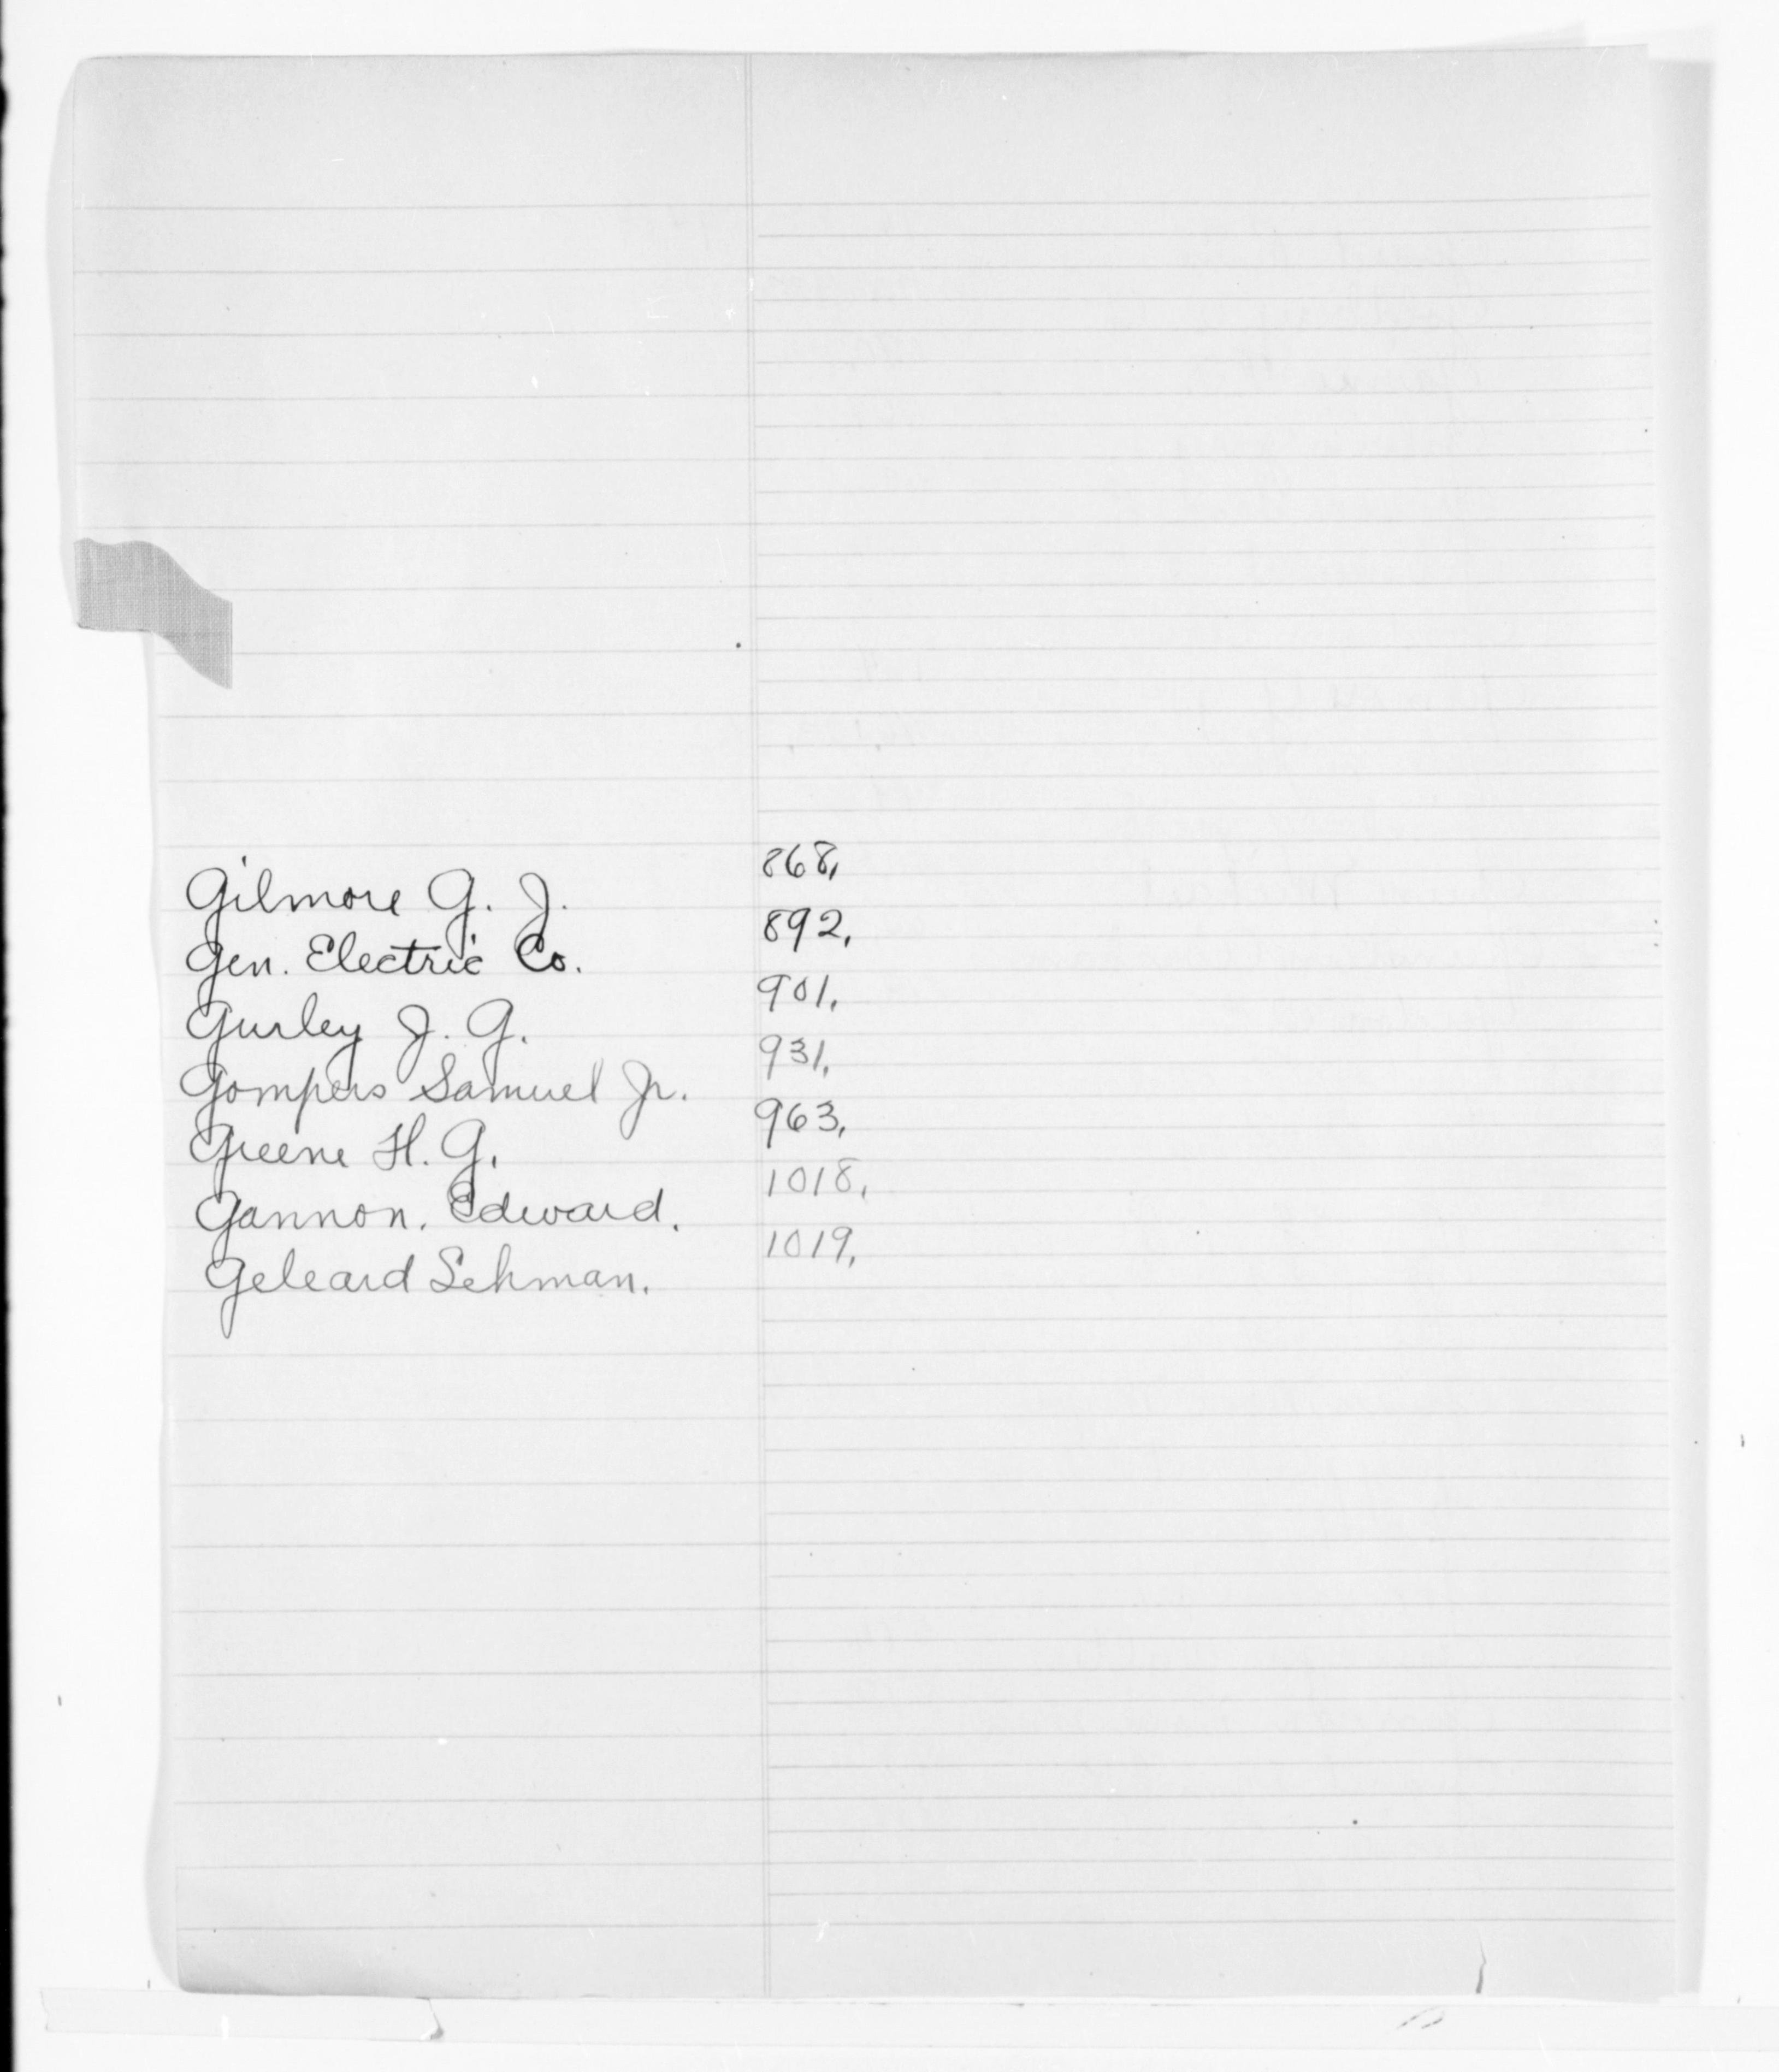 Gilmore G. J. 868,
Gen. Electric Co. 892,
Gurley J. G. 901,
Gompers Samuel Jr. 931,
Greene H. G. 963,
Gannon. Edward. 1018,
Geleard Lehman. 1019,